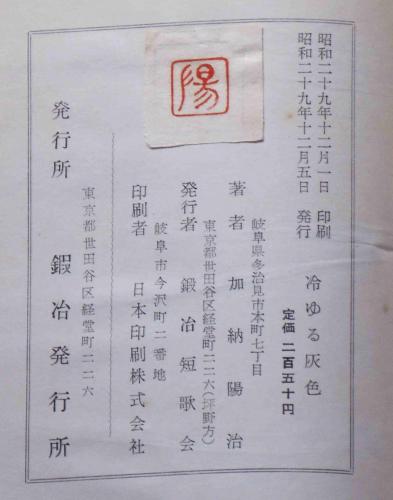 昭和二十九年十二月一日 印刷
昭和二十九年十二月五日 発行
冷ゆる灰色
定価 二百五十円
岐阜県多治見市本町七丁目
著者 加納陽治
東京都世田谷区経堂町二二六(坪野方)
発行者 鍛冶短歌会
岐阜市今沢町二番地
印刷者 日本印刷株式会社
東京都世田谷区経堂町二二六
発行所 鍛冶発行所
陽